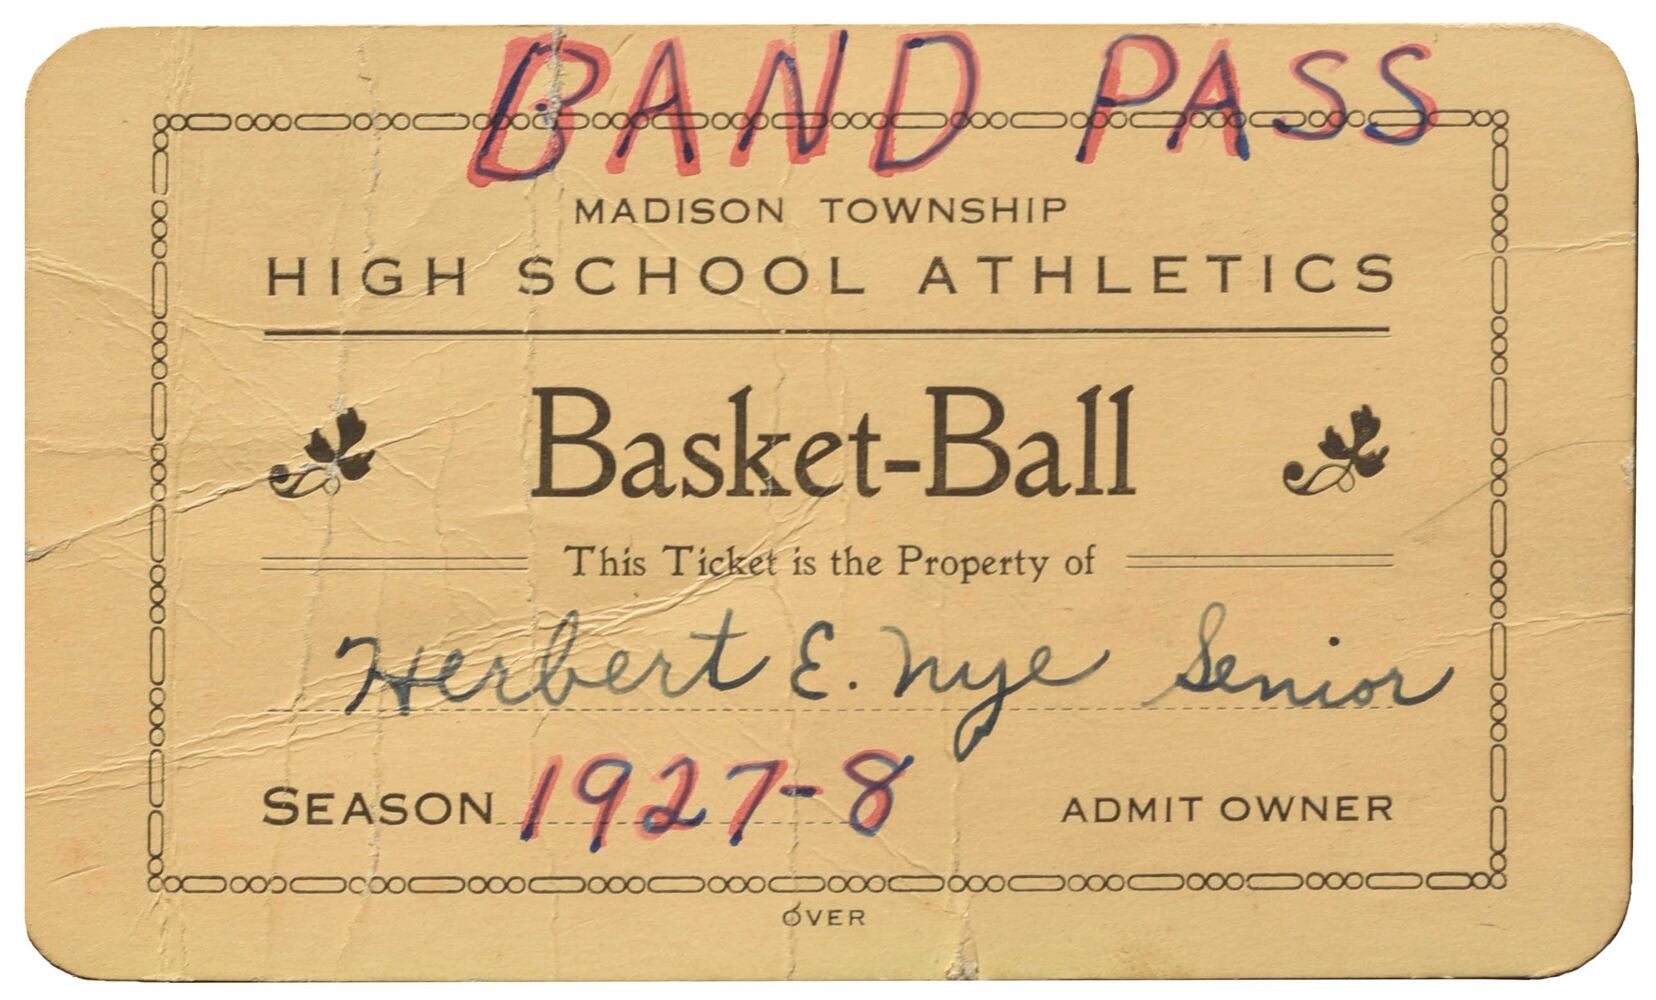 BAND PASS
MADISON TOWNSHIP
HIGH SCHOOL ATHLETICS
Basket-Ball
This Ticket is the Property of
Herbert E. Nye Senior
SEASON 1927-8 ADMIT OWNER
OVER